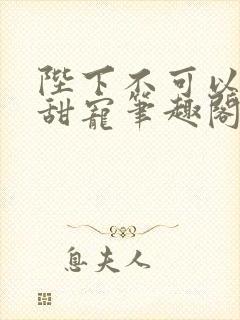 陛下不可以
甜宠笔趣阁
息夫人